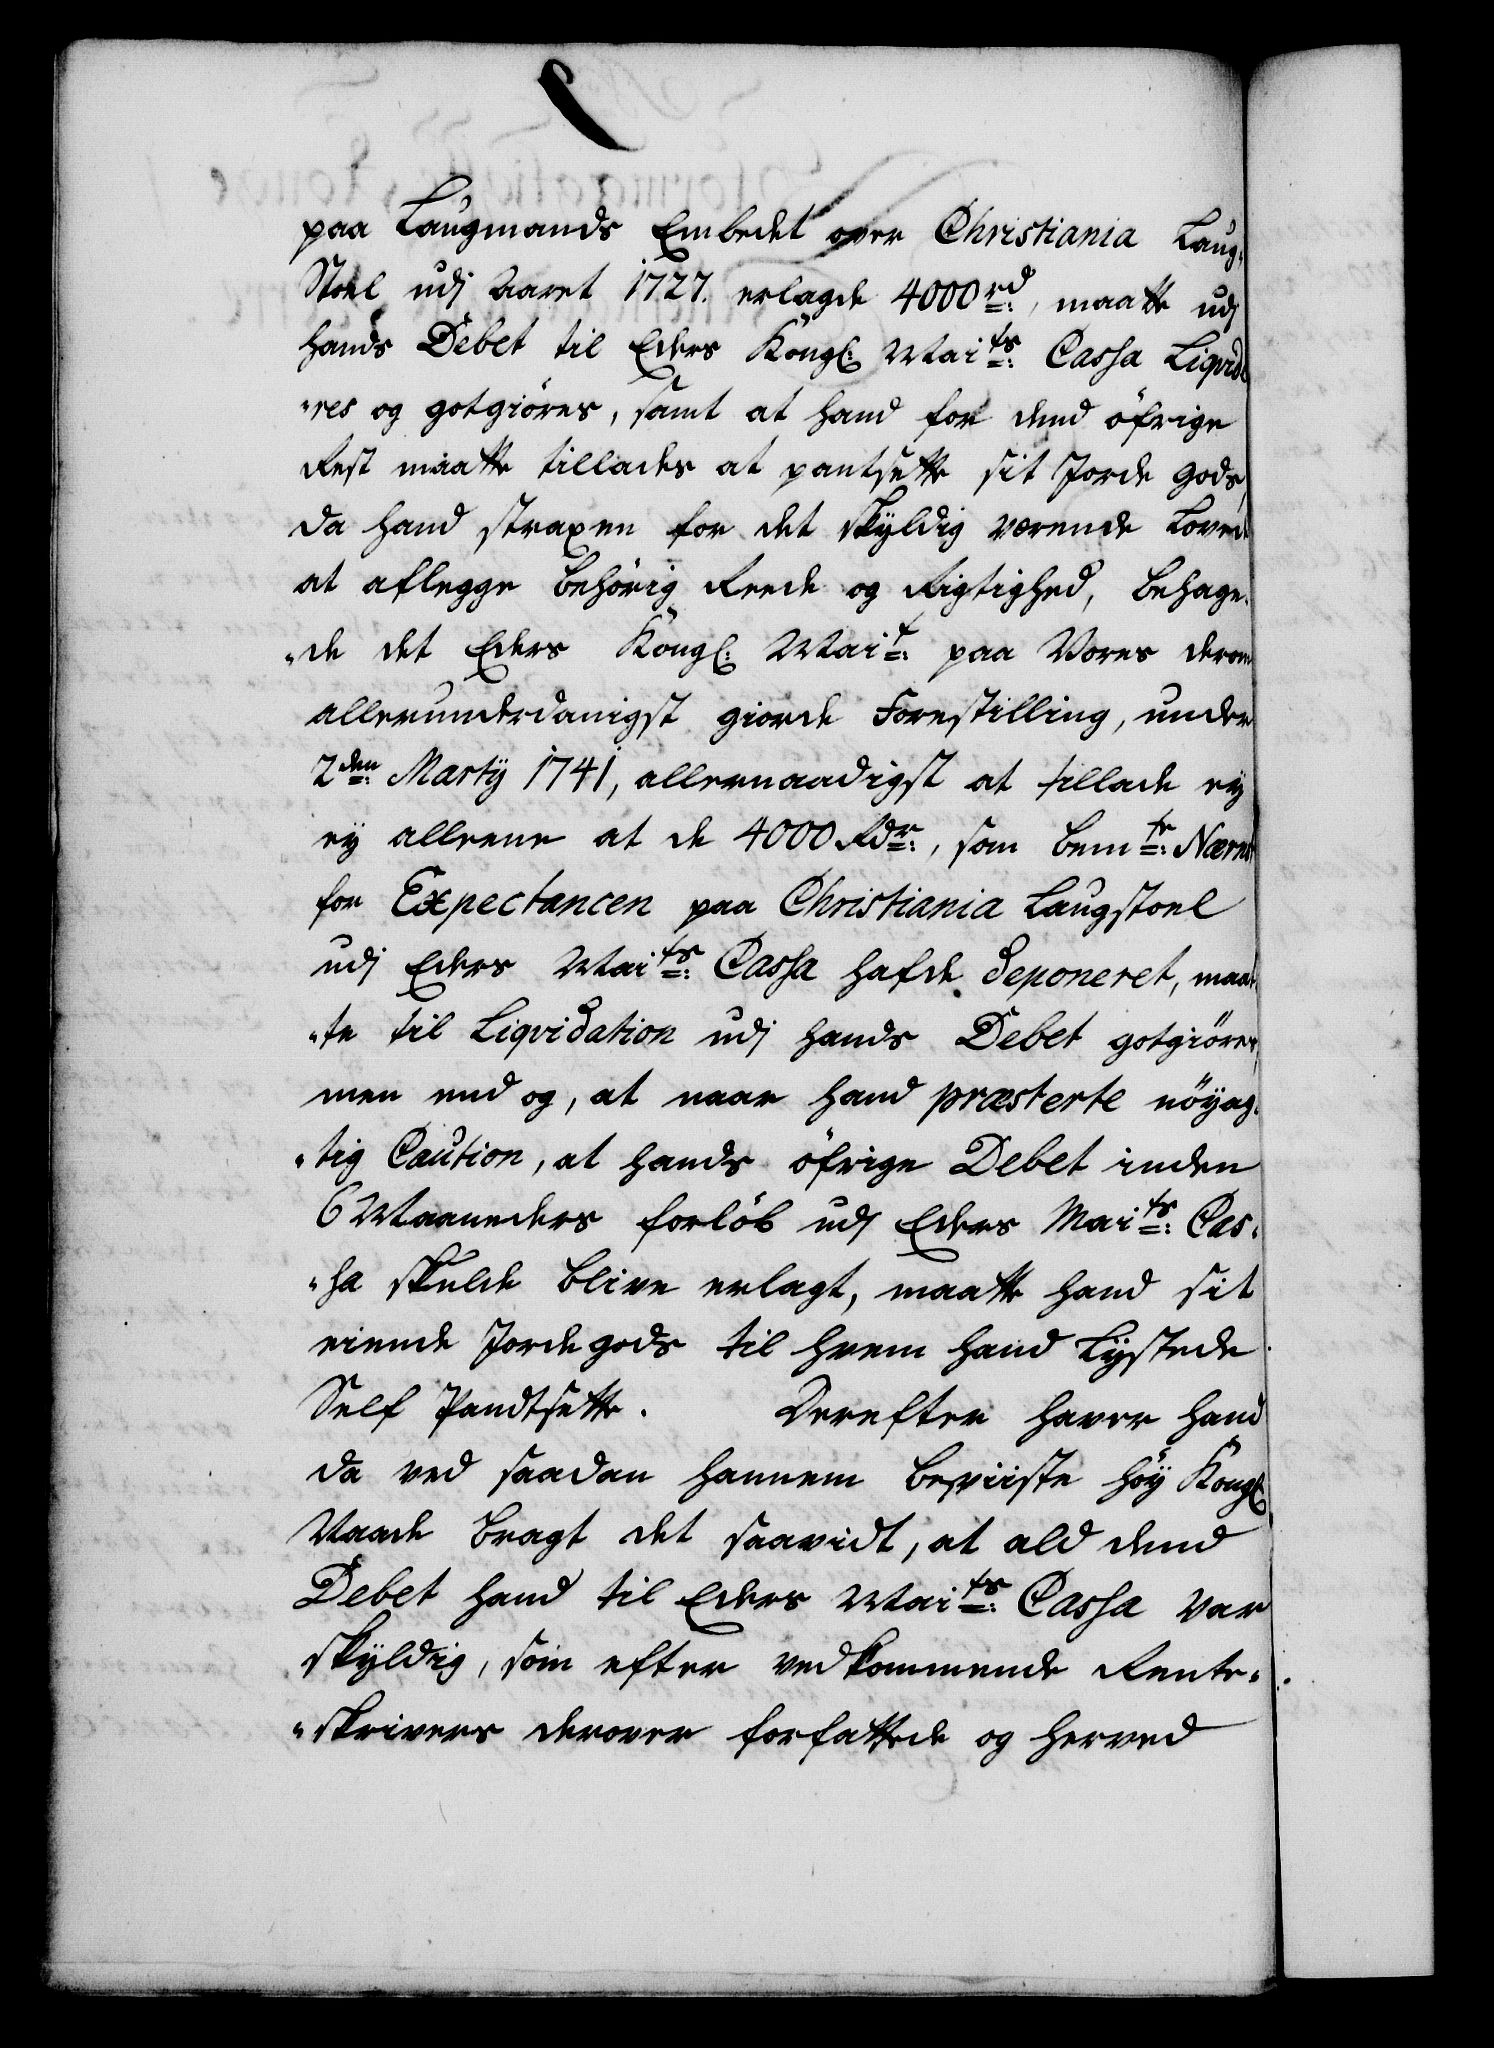 paa Laugmands Embedet over Christiania Laug-
Stoel udj Aaret 1727. erlagde 4000 rd:, maatte udj
hands Debet til Eders Kongl: Maits: Cassa Liqvide
"res og gotgiöres, samt at hand for dend öfrige
Rest maatte tillades at pantsette sit Jorde Gods,
da hand straxen for det skÿldig værende Lovede
at aflegge behörig Reede og Rigtighed, behage-
"de det Eders Kongl: Mait: paa Vores derom
allerunderdanigst giorde Forestilling, under
2den: Martÿ 1741, allernaadigst at tillade eÿ
eÿ alleene at de 4000 Rdr:, som bemte: Nærnst
for Expectancen paa Christiania Laugstoel
udj Eders Maits: Cassa hafde deponeret, maat-
"te til Liqvidation udj hands Debet gotgiöres,
men end og, at naar hand præsterte nöÿag-
"tig Caution, at hands öfrige Debet inden
6 Maaneders forlöb udj Eders Maits: Cas-
"sa skulde blive erlagt, maatte hand sit
eiende Jordegods til hvem hand Lÿstede
Self Pandtsette. Derefter haver hand
da ved saadan hannem beviiste höÿ Kongl:
Naade bragt det saavidt, at ald dend
Debet hand til Eders Maits: Cassa var
skÿldig, som efter vedkommende Rente-
"skrivers derover forfattede og herved